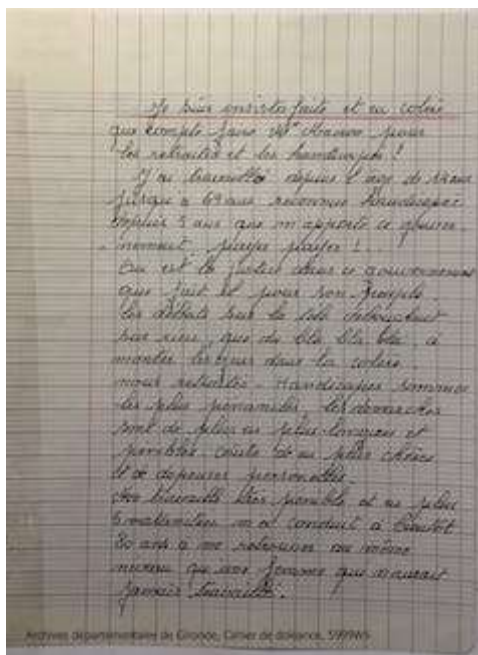 Je suis insatisfaite et en colère
que compte faire Mr Macron pour
les retraités et les handicapés !
J'ai travaillé depuis l'age de 14 ans
jusqu'a 69 ans reconnue handicapée
depuis 5 ans que m'apporte ce gouver-
nement, payer payer ! ..
Ou est la justice dans ce gouvernement
que fait il pour son peuple.
les débats sur la télé débouchent
sur rien, que du bla bla bla, à
monter les gens dans la colère.
nous retraités - Handicapés sommes
les plus penalisés, les demarches
sont de plus en plus longues et
penibles, coute de en plus chères
le de depenses personelles.
travaille très penible et en plus
5 maternités m'a conduit à bientot
80 ans a me retrouver au même
niveau qu'une femme qui n'aurait
jamais travaillé.
Archives départementales de Gironde, Cahier de doléance, 5999W5